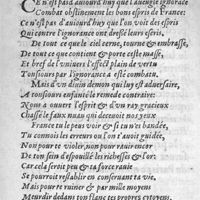 CE n'est pas d'aujourd'huy que l'aueugle ignorāce
Combat obstinement les bons esprits de France:
Ce n'est pas d'aujourd'huy que l'on voit des esprits
Qui contre l'ignorance ont dressé leurs escris,
De tout ce que le ciel terne, tourne & embrasse,
De tout ce que contient & porte ceste masse,
Et bref de l'vniuers l'effect plain de vertu
Tousiours par l'ignorance a esté combatu.
Mais d'vn diuin demon qui luy est aduersaire,
Tousiours on ensuiuit le remede contraire:
Nous a ouuert l'esprit & d'vn ray gracieux
Chasse le faux nuau qui deceuoit noz yeux
France tu le peux voir & si tu n'es bandée,
Tu connois les erreurs ou l'on t'auoit guidée,
Non pour te violer, non pour rauir encor
De ton sein despouillé les richesses & l'or:
Car cela seroit peu & ta force rauie
Se pourroit restablir en conseruant ta vie,
Mais pour te ruiner & par mille moyens
Meurdrir dedans ton flanc tes propres cytoyens.